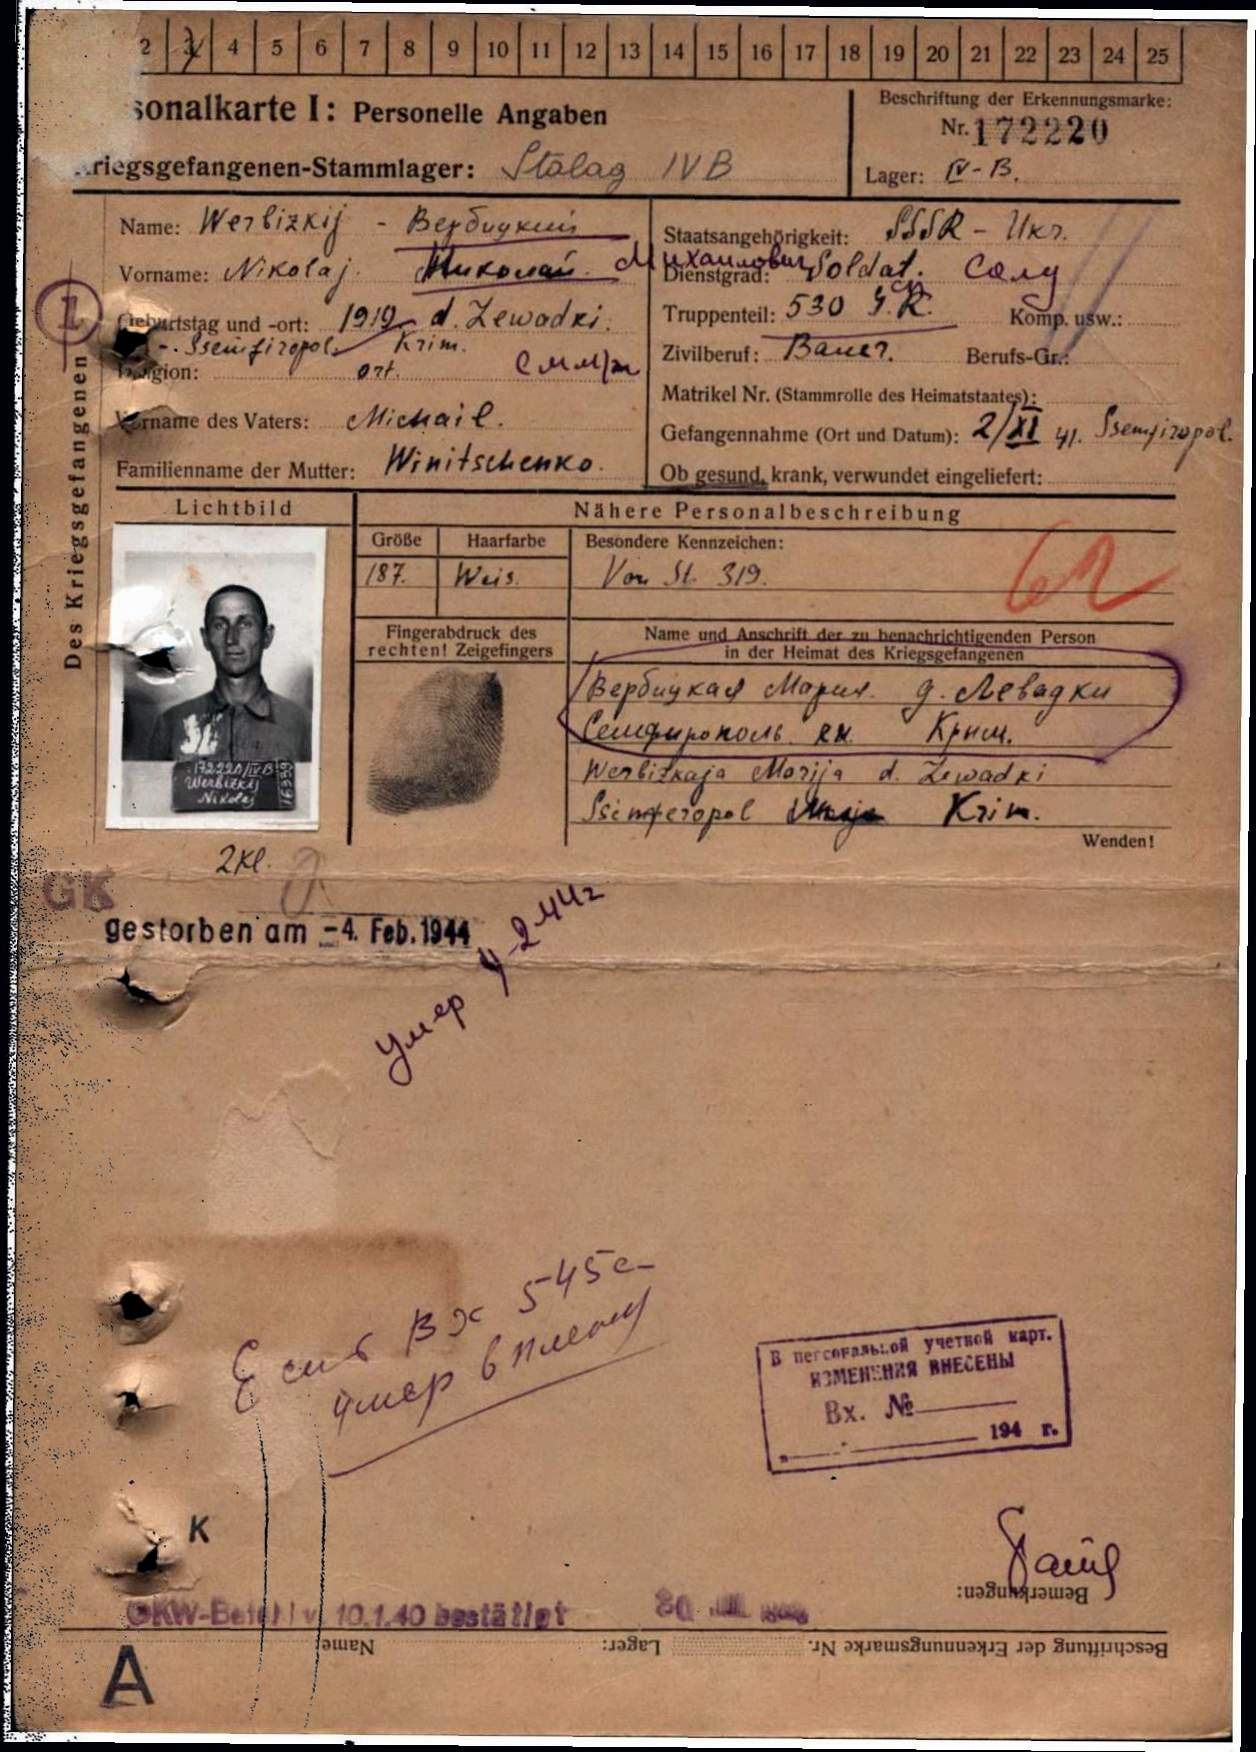 2 3 4 5 6 7 8 9 10 11 12 13 14 15 16 17 18 19 20 21 22 23 24 25
sonalkarte I: Personelle Angaben
Beschriftung der Erkennungsmarke:
Nr. 172220
riegsgefangenen-Stammlager: Stalag IV B
Lager: IV-B.
Des Kriegsgefangenen
Name: Werbizkij - Вербицкий
Staatsangehörigkeit: SSSR - Ukr.
Vorname: Nikolaj. Николай. Михайлович
Dienstgrad: Soldat. Солд
Geburtstag und -ort: 1919 d. Lewadki.
Truppenteil: 530 J.R. Komp. usw.:
Ssemfiropol. Krim.
Zivilberuf: Bauer. Berufs-Gr.:
Religion: ort.
Matrikel Nr. (Stammrolle des Heimatstaates):
Vorname des Vaters: Michail.
Gefangennahme (Ort und Datum): 2/XI 41. Ssemfiropol.
Familienname der Mutter: Winitschenko.
Ob gesund, krank, verwundet eingeliefert:
Lichtbild
Nähere Personalbeschreibung
Größe Haarfarbe Besondere Kennzeichen:
187. Weis. Von St. 319.
Fingerabdruck des
rechten! Zeigefingers
Name und Anschrift der zu benachrichtigenden Person
in der Heimat des Kriegsgefangenen
Вербицкая Мария. д. Левадки
Семфирополь рн. Крым.
Werbizkaja Marija d. Lewadki
Ssimferopol Krim.
172220/IVB
Werbizkij
Nikolaj
Wenden!
2Kl.
GK
gestorben am -4. Feb. 1944
умер 4-2-44г
Есть Вх 545с
умер в плену
В персональной учетной карт.
ИЗМЕНЕНИЯ ВНЕСЕНЫ
Вх. №
194 г.
K
Bemerkungen:
OKW-Befehl v. 10.1.40 bestätigt
Beschriftung der Erkennungsmarke Nr. Lager: Name
A